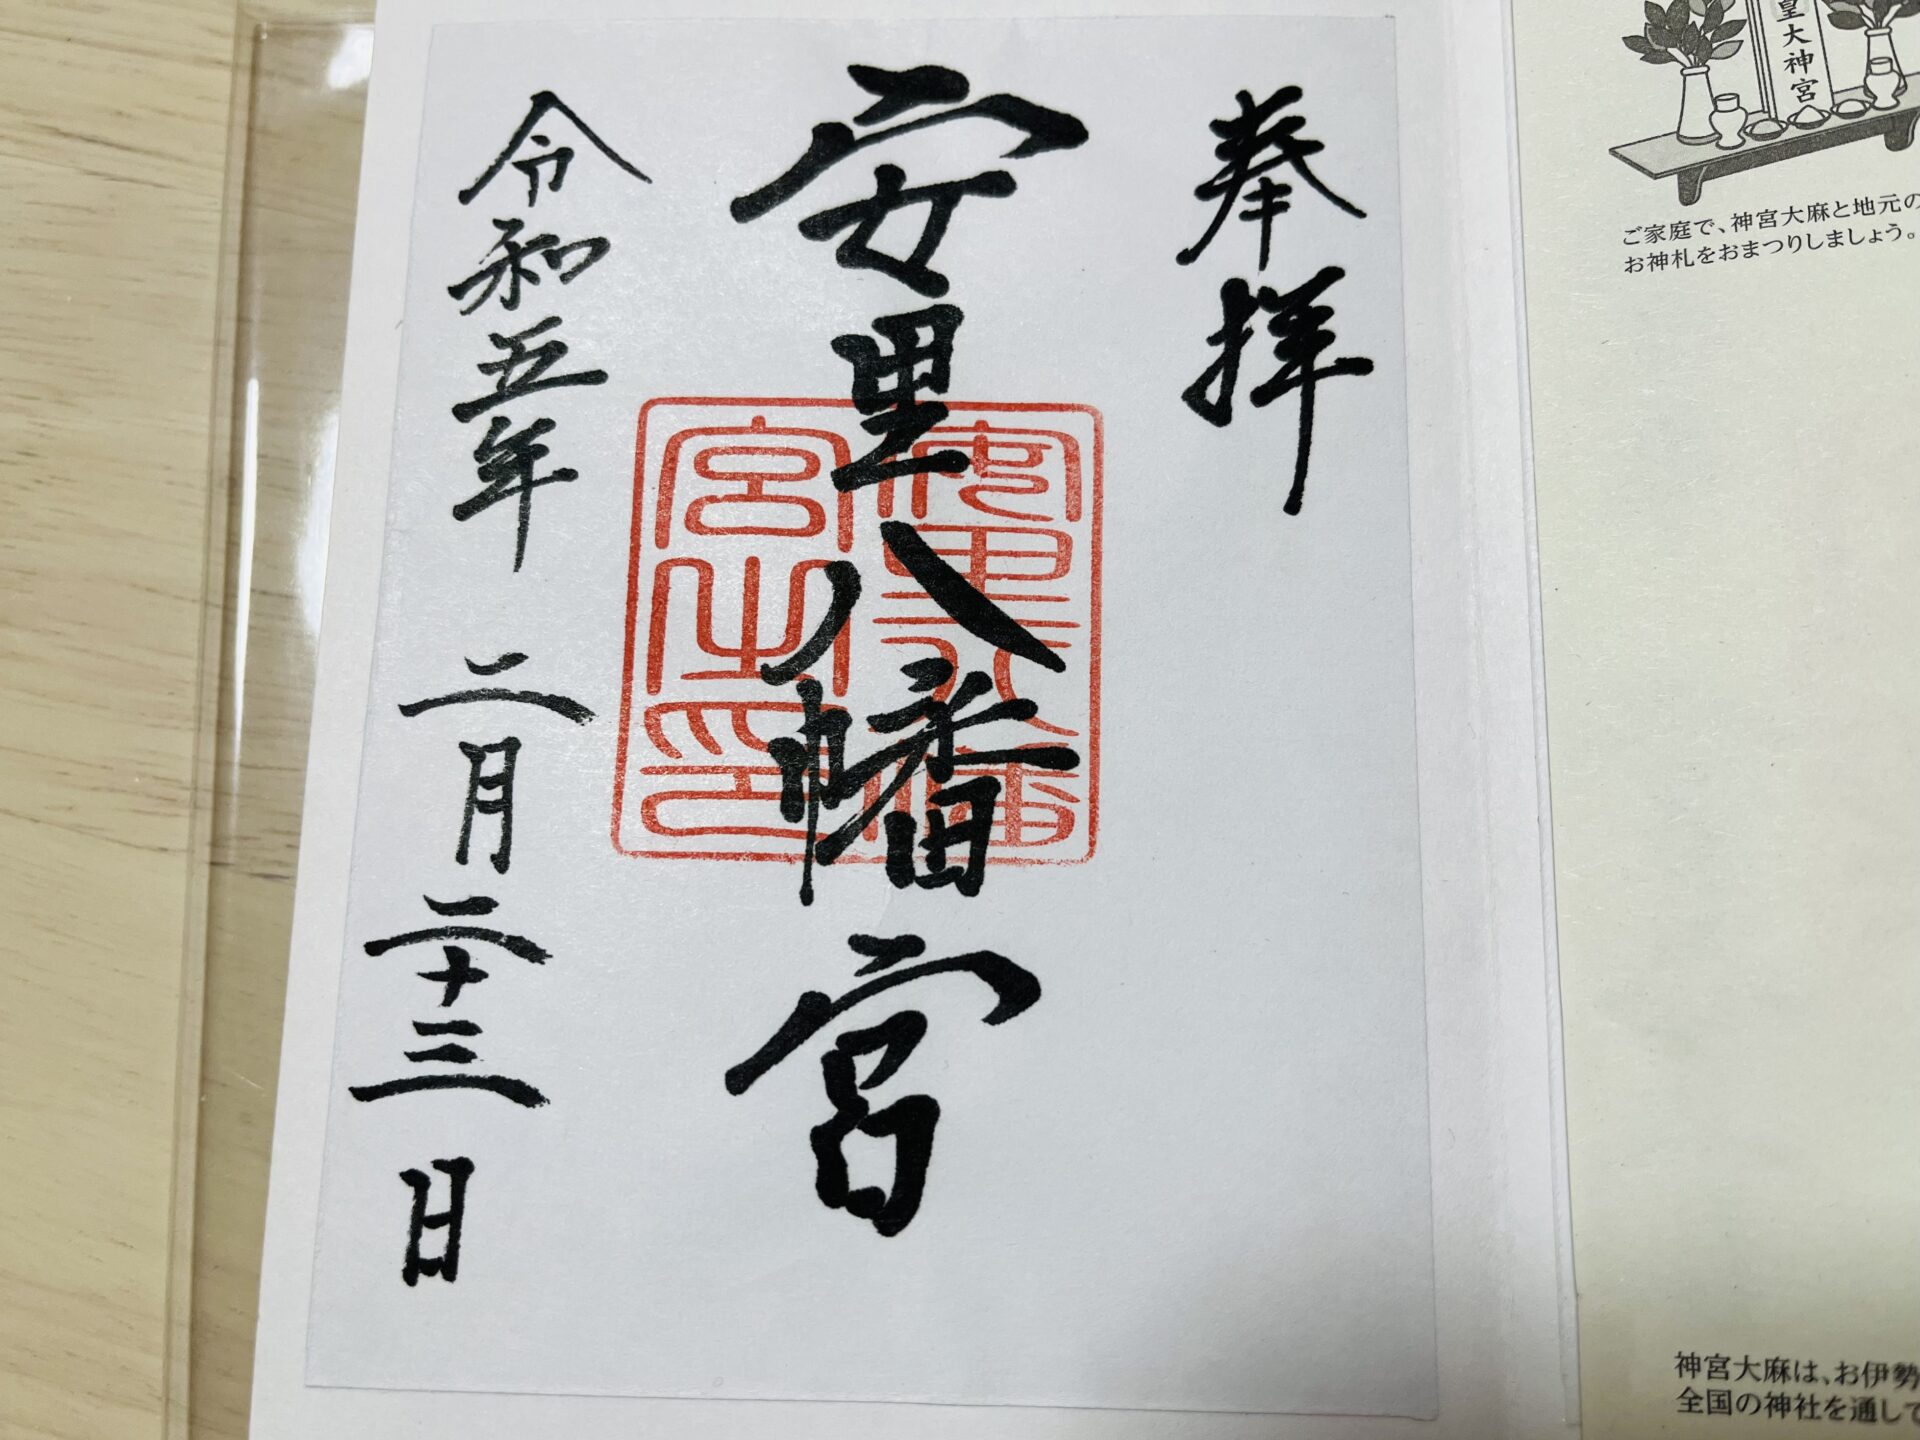 皇大神宮
ご家庭で、神宮大麻と地元の
お神札をおまつりしましょう。
奉拝
安里八幡宮
安里八幡
宮之印
令和五年 二月二十三日
神宮大麻は、お伊勢
全国の神社を通して